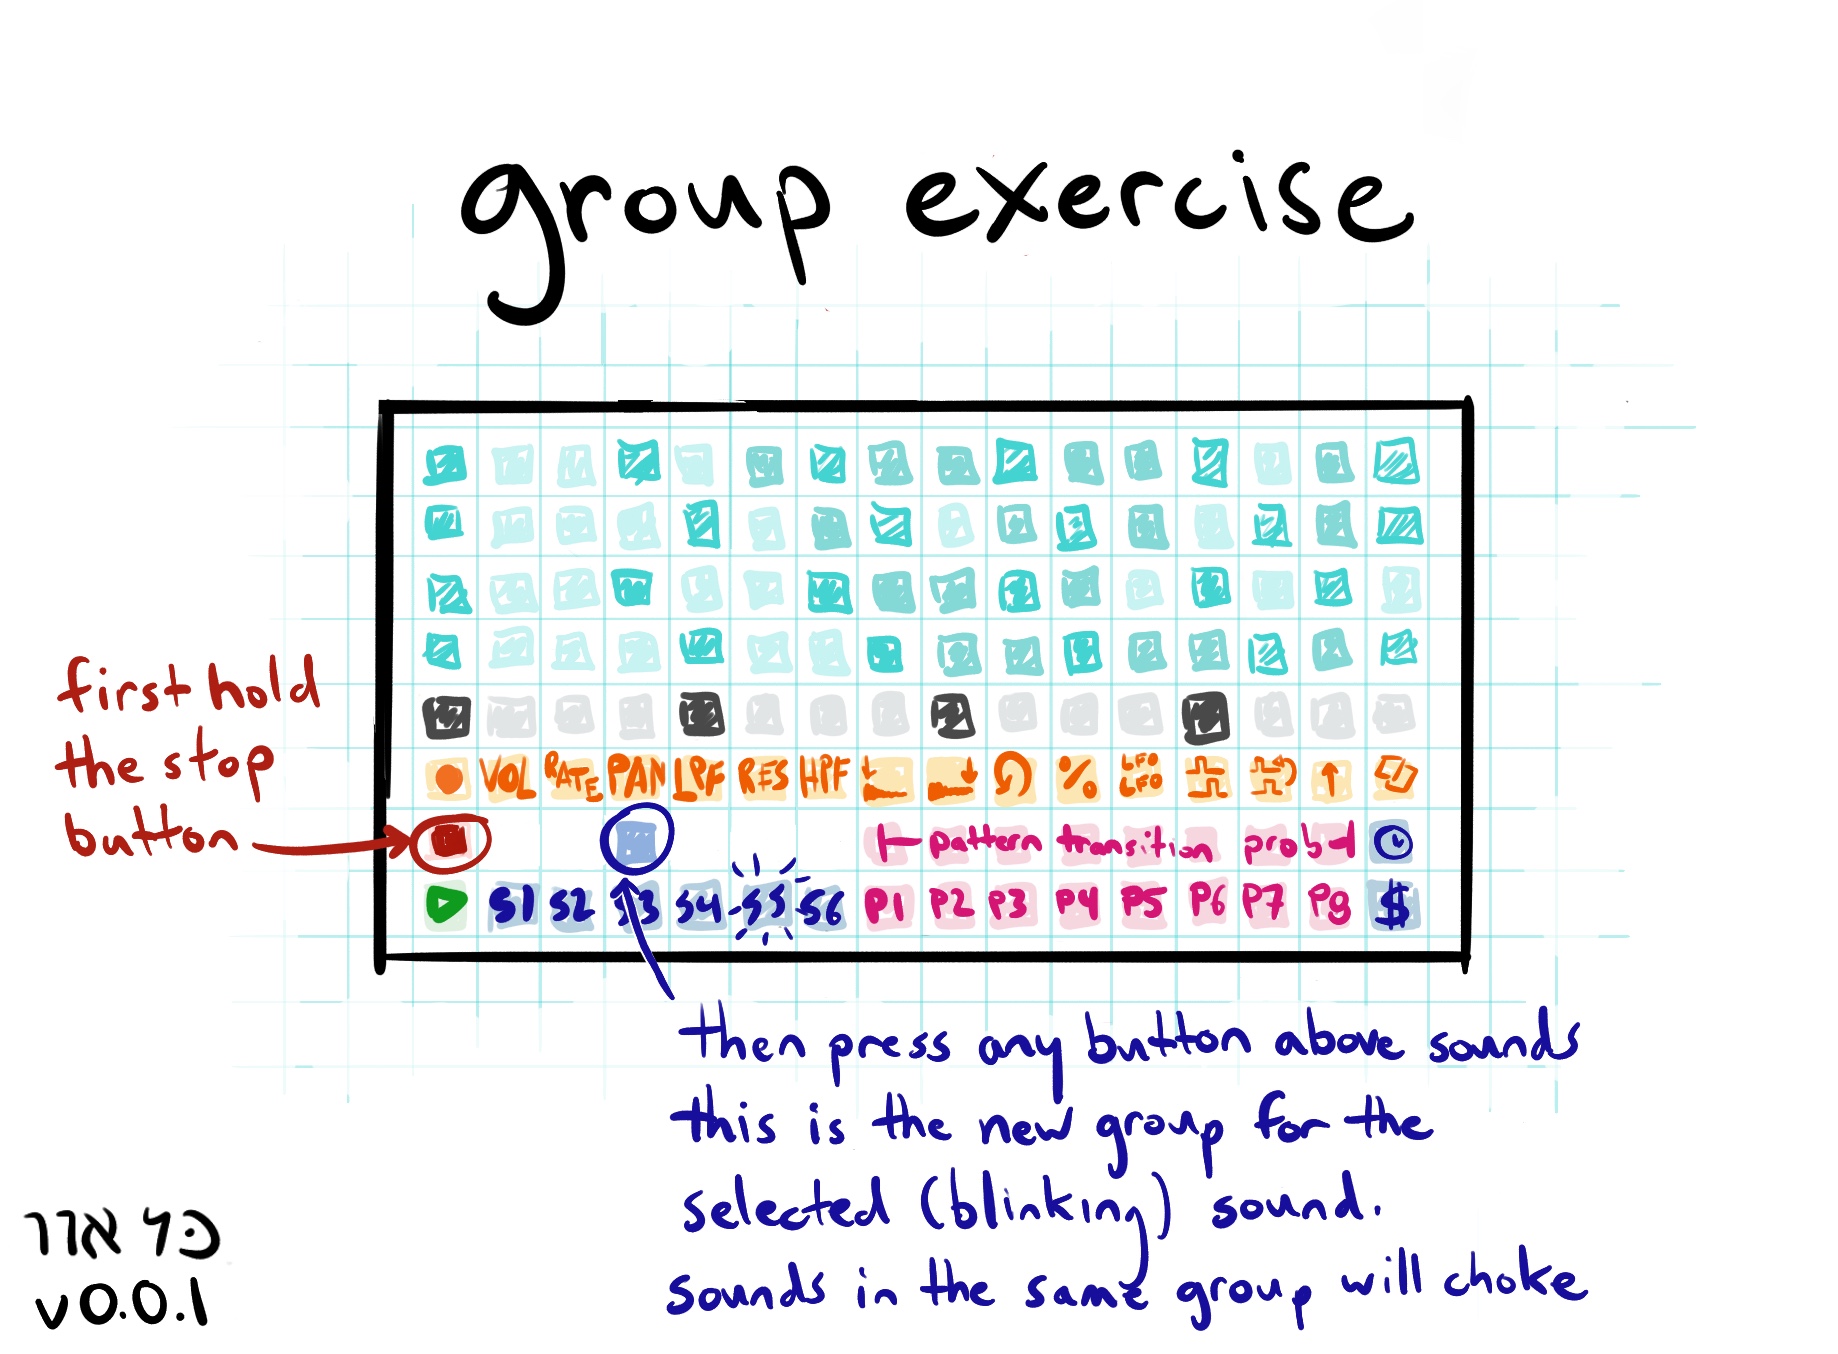 group exercise
first hold
the stop
button
VOL RATE PAN LPF RES HPF % LFO LFO
pattern transition prob
S1 S2 S3 S4 S5 S6 P1 P2 P3 P4 P5 P6 P7 P8 $
then press any button above sounds
this is the new group for the
selected (blinking) sound.
sounds in the same group will choke
v0.0.1